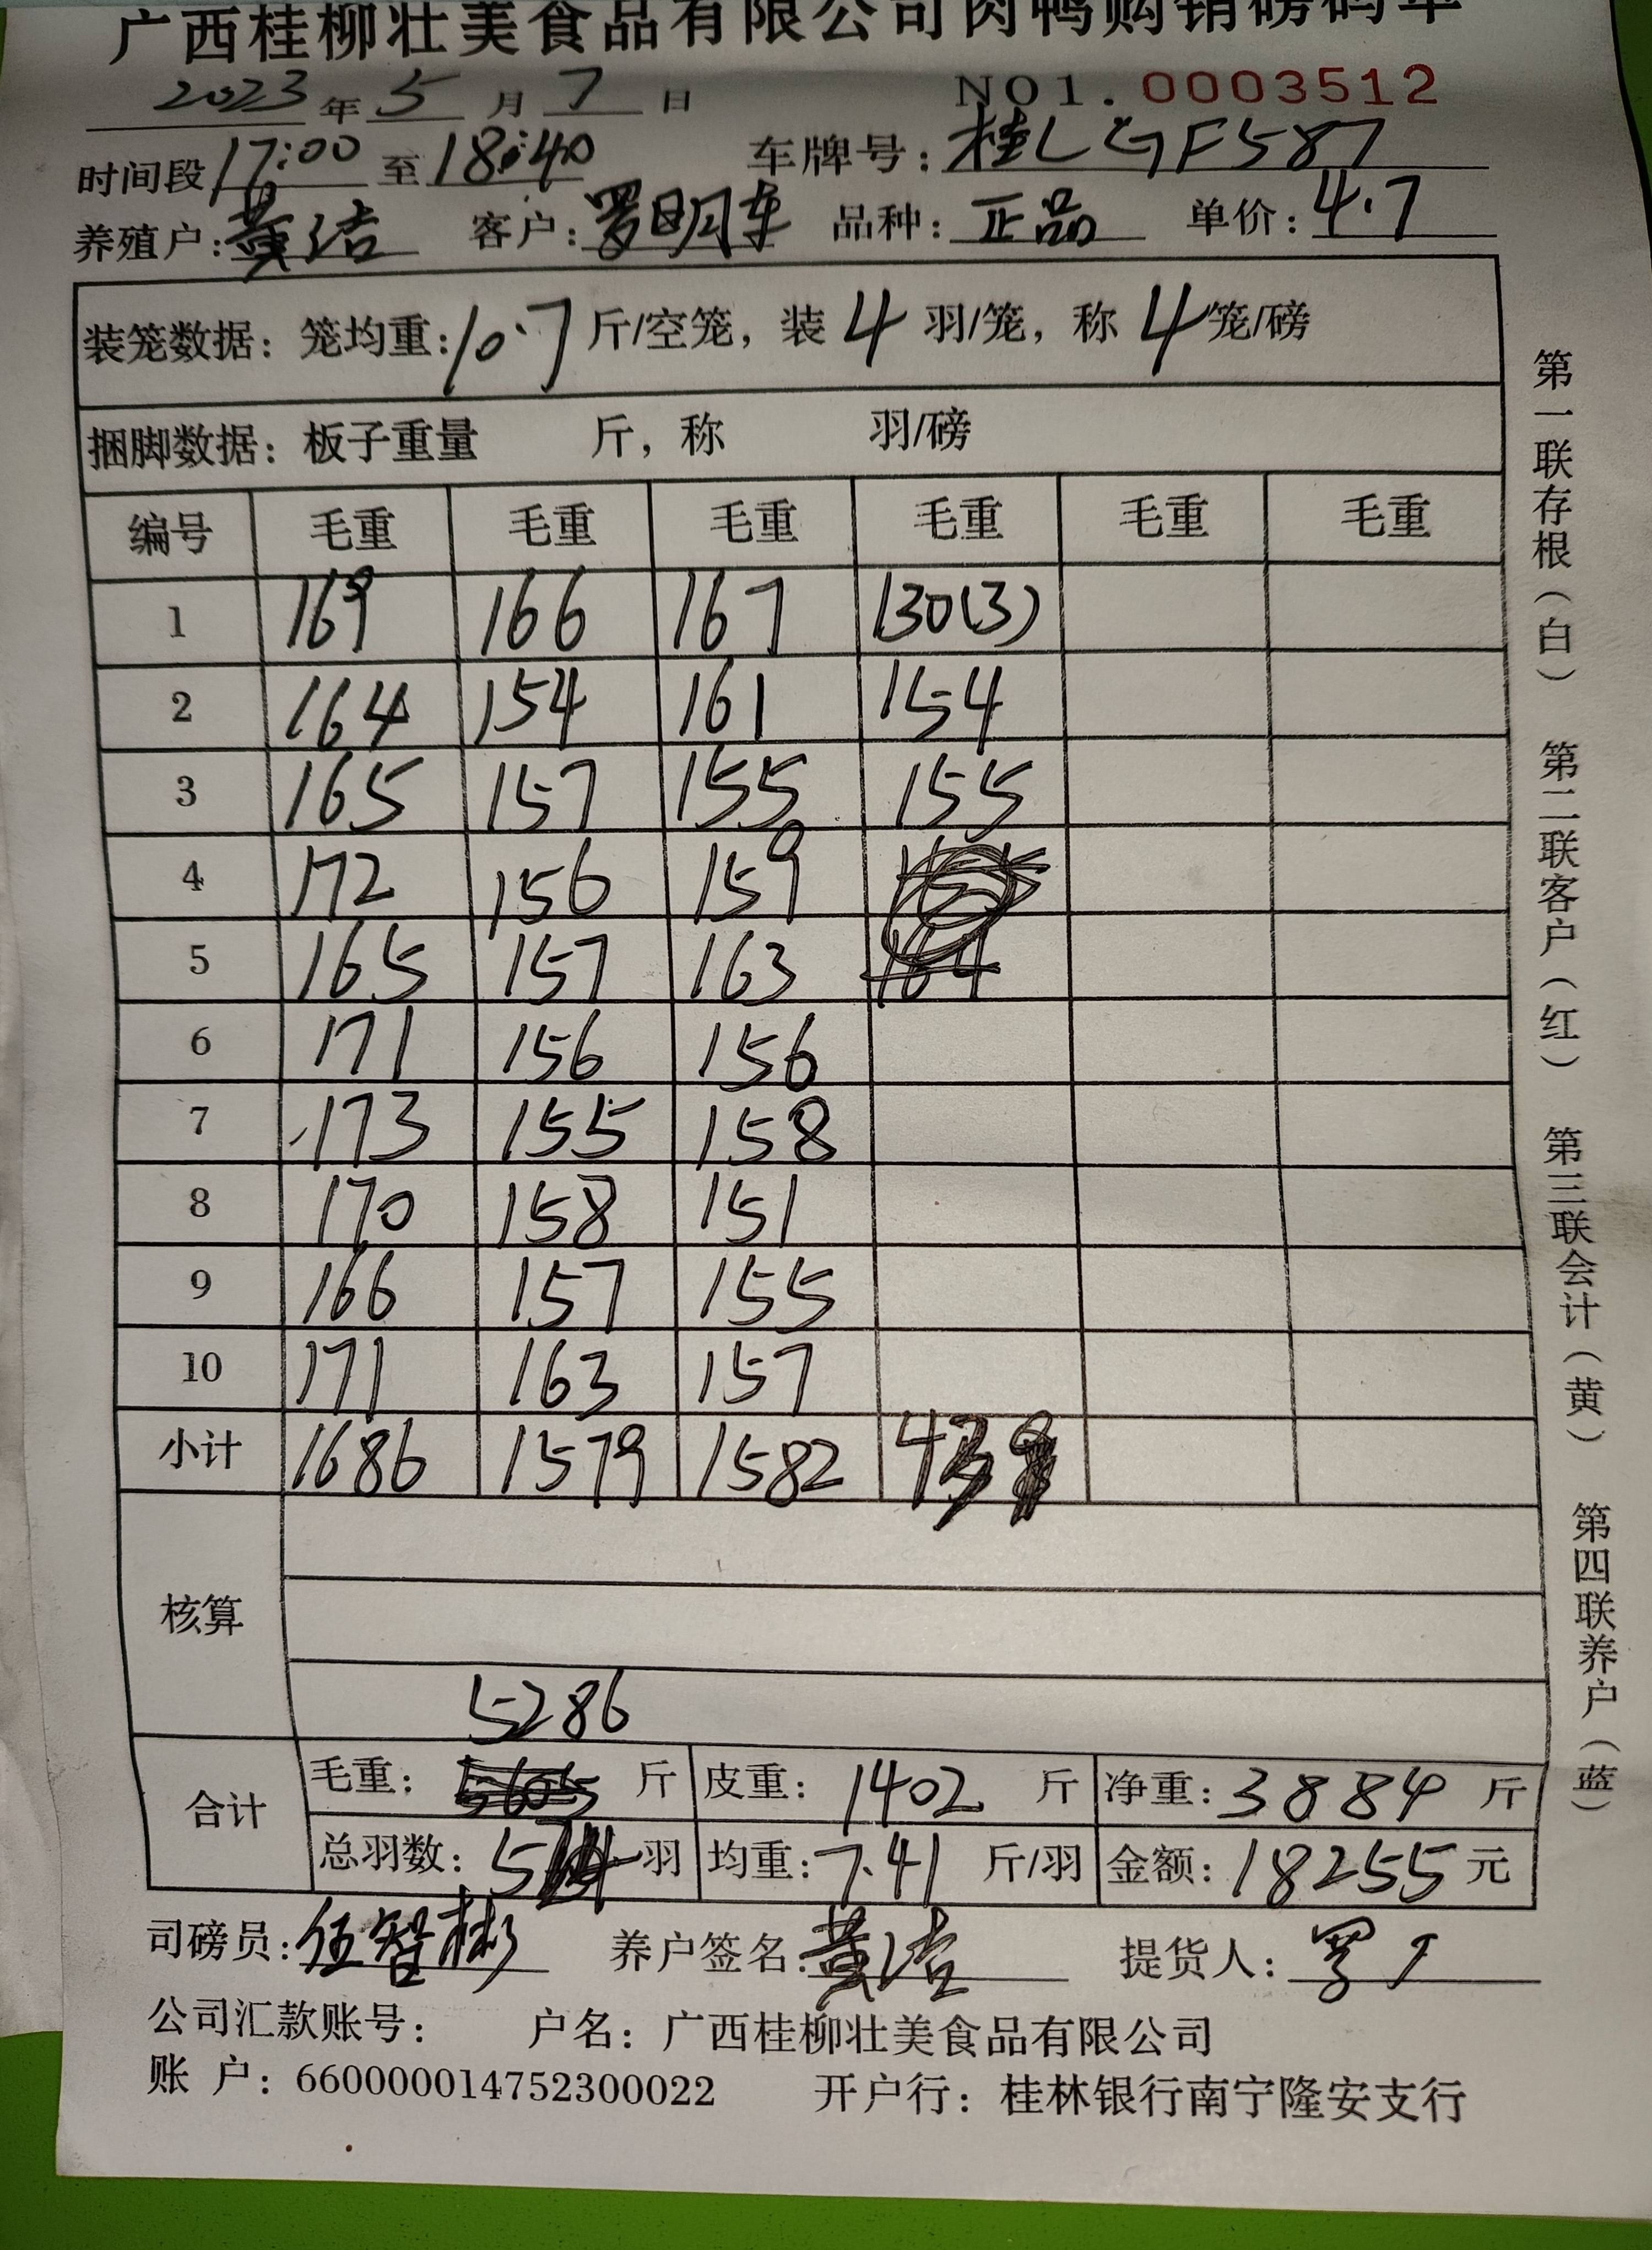 广西桂柳壮美食品有限公司肉鸭购销磅码单
2023年5月7日 NO1.0003512
时间段17:00至18:40 车牌号:桂LGF587
养殖户:黄洁 客户:罗明军 品种:正品 单价:4.7
装笼数据:笼均重:10.7斤/空笼,装4羽/笼,称4笼/磅
捆脚数据:板子重量 斤,称 羽/磅
编号 毛重 毛重 毛重 毛重 毛重 毛重
1 169 166 167 130(3)
2 164 154 161 154
3 165 157 155 155
4 172 156 159
5 165 157 163 164
6 171 156 156
7 173 155 158
8 170 158 151
9 166 157 155
10 171 163 157
小计 1686 1579 1582 439
核算
5286
合计 毛重:5605斤 皮重:1402斤 净重:3884斤
总羽数:羽 均重:7.41斤/羽 金额:18255元
司磅员:伍智彬 养户签名:黄洁 提货人:罗
公司汇款账号: 户名:广西桂柳壮美食品有限公司
账户:660000014752300022 开户行:桂林银行南宁隆安支行
第一联存根(白) 第二联客户(红) 第三联会计(黄) 第四联养户(蓝)